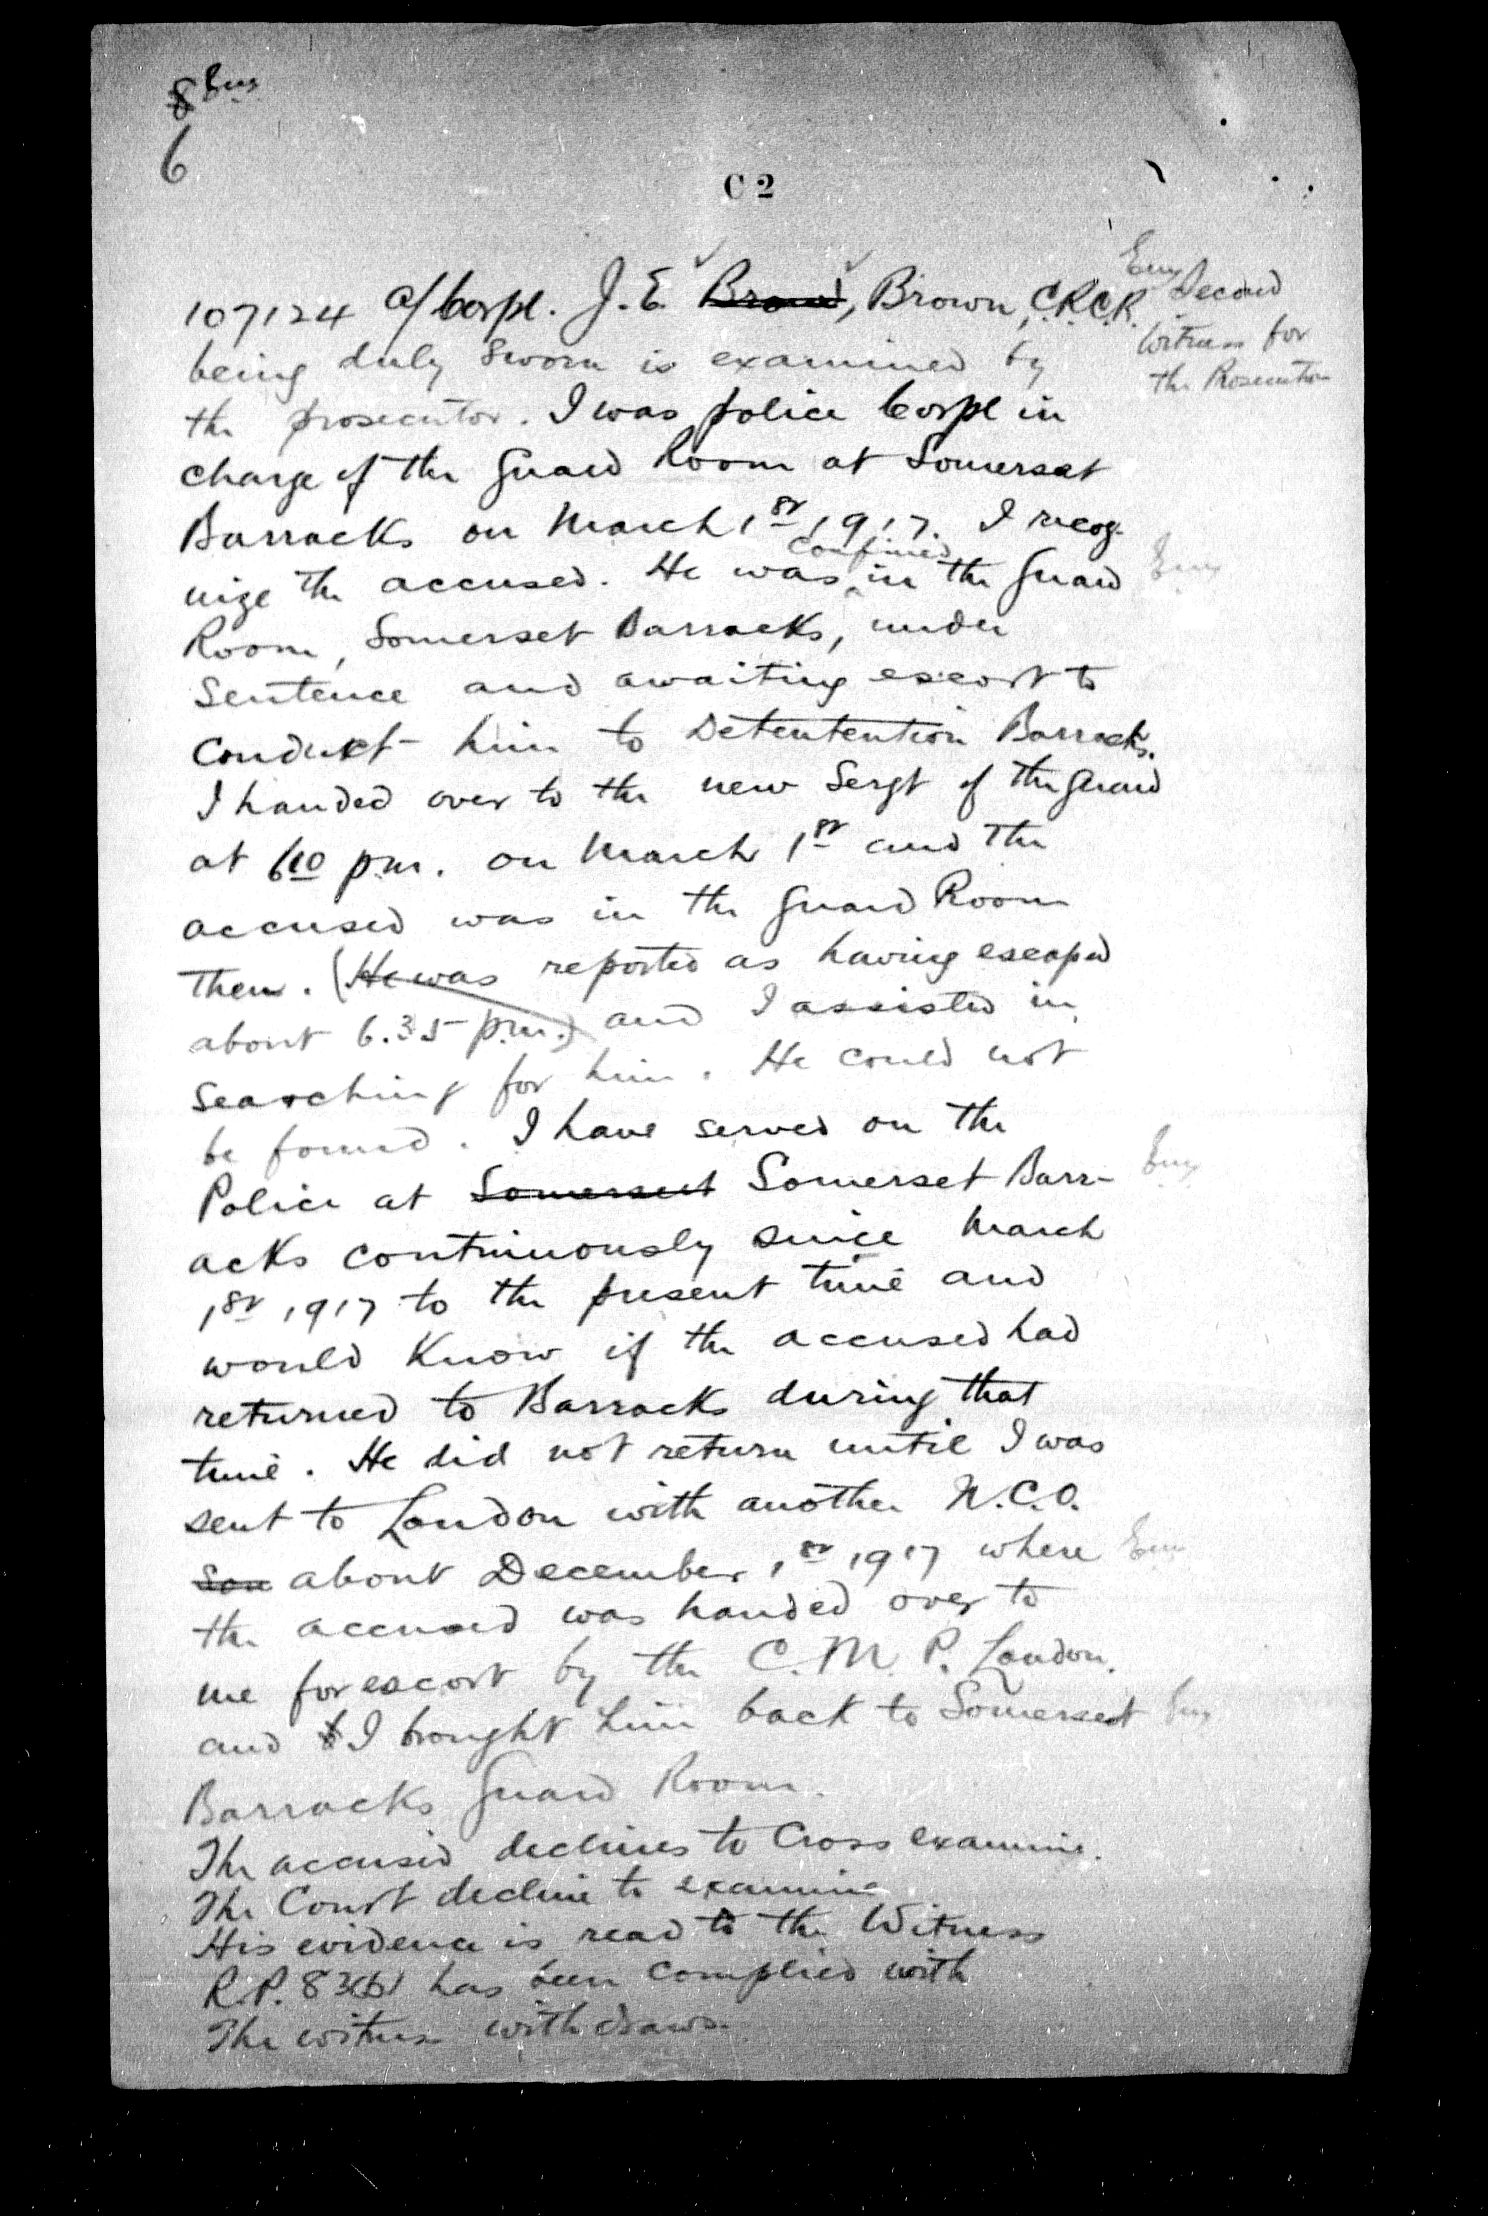 8
6
C 2
107124 A/Corpl. J. E. Brown, Brown, C.R.C.R. Second
Witness for
the Prosecution
being duly sworn is examined by
the prosecutor. I was police Corpl in
charge of the Guard Room at Somerset
Barracks on March 1st 1917. I recog-
nize the accused. He was confined in the Guard
Room, Somerset Barracks, under
sentence and awaiting escort to
conduct him to Detentention Barracks.
I handed over to the new Sergt of the Guard
at 610 p.m. on March 1st and the
accused was in the Guard Room
then. (He was reported as having escaped
about 6.35 p.m.) and I assisted in
searching for him. He could not
be found. I have served on the
Police at Somerset Somerset Barr-
acks continuously since March
1st 1917 to the present time and
would know if the accused had
returned to Barracks during that
time. He did not return until I was
sent to London with another N.C.O.
son about December 1st 1917 where
the accused was handed over to
me for escort by the C. M. P. London.
and I brought him back to Somerset
Barracks Guard Room.
The accused declines to Cross examine.
The Court decline to examine
His evidence is read to the Witness
R.P. 83(b) has been complied with
The witness withdraws.